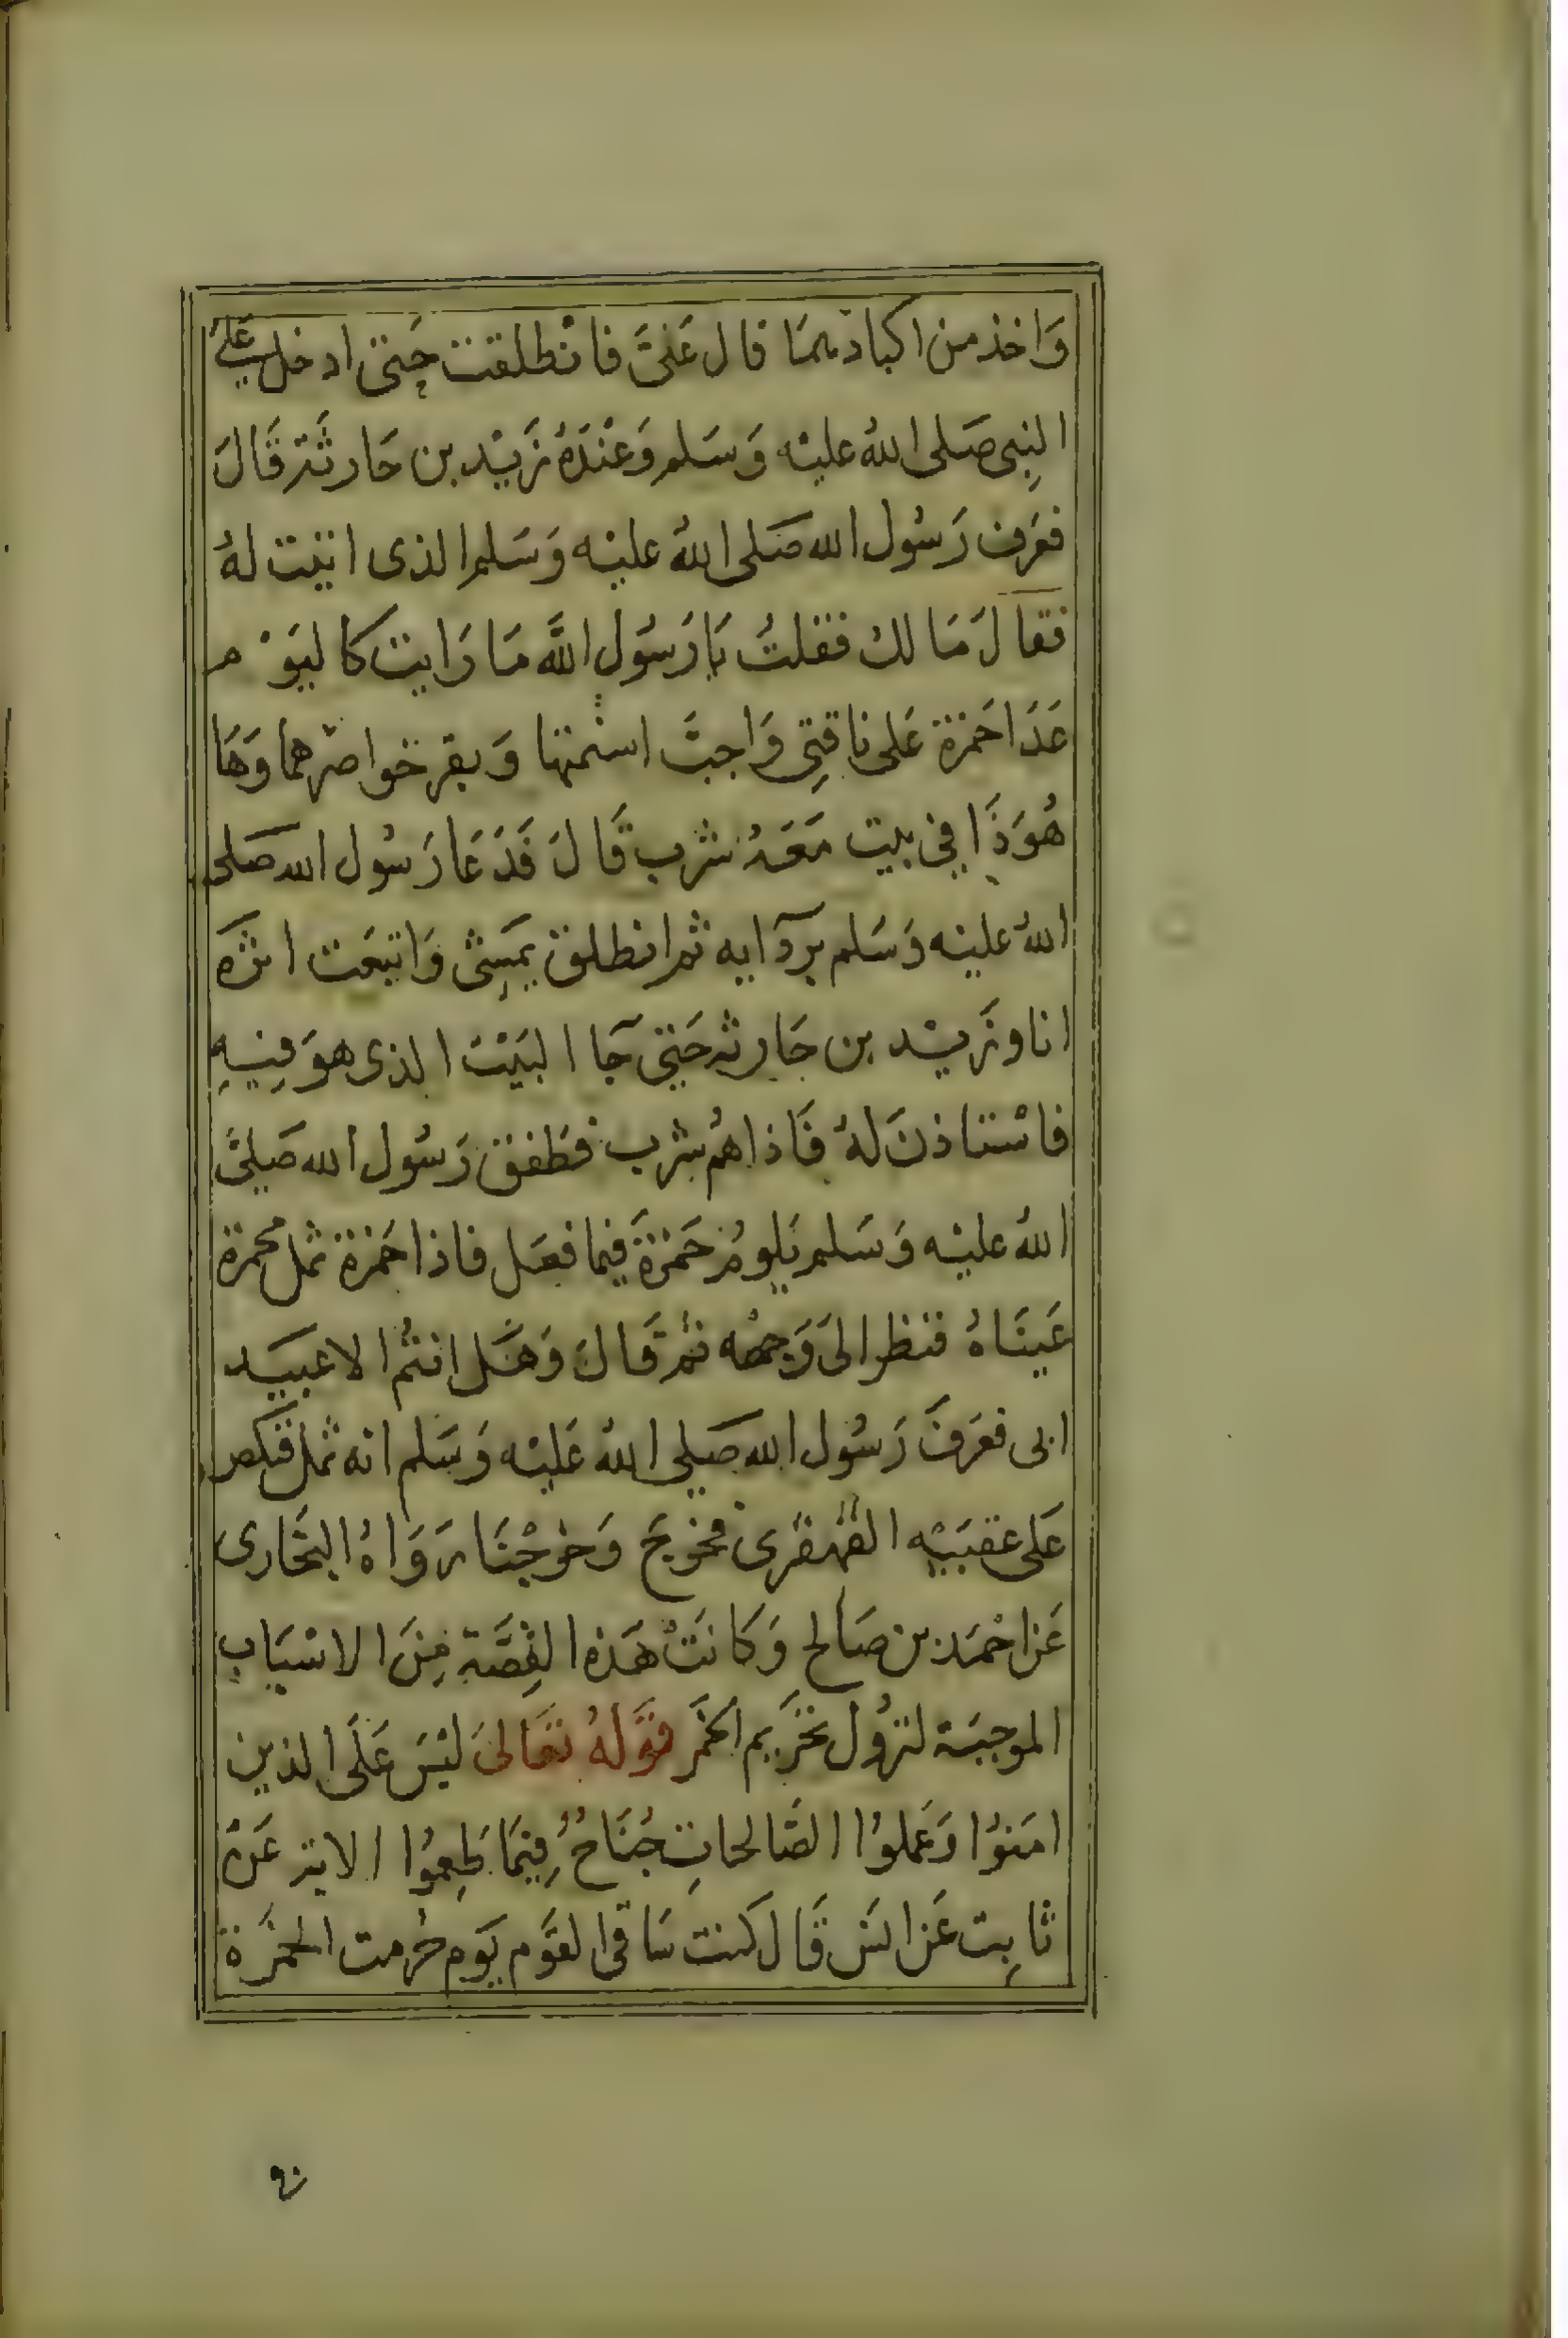 وَاخذ من اكبادهمَا قال عَلىَّ فانْطلقت حَتى ادخل عَلى
النبِى صَلى اللهُ عليْه وَسَلم وَعنْدَهُ زَيْد بن حَارثَة قَالَ
فعَرَف رَسُول الله صَلى اللهُ عليْه وَسَلم الذى اتيت لهُ
فقالَ مَا لك فقلتُ يَا رَسُول اللَّه مَا رَايت كاليَوْم
عَدَا حَمزة عَلى ناقتِى وَاجبَّ اسْنمتها وَبقر خواصرهما وَهَا
هُوَ ذَا في بيت مَعَهُ شرب قَالَ فَدَعَا رَسُول الله صَلى
اللهُ عليْه وَسَلم بردآيه ثم انطلق يمَشِى وَاتبعَت اثرَه
انا وزَيْد بن حَارثه حَتى جَا البَيْتَ الذى هوَ فِيْهِ
فاسْتاذنَ لهُ فَاذا همُ شرب فطَفق رَسُول الله صَلىَّ
اللهُ عليْه وَسَلم يَلومُ حَمْزةَ فيما فعَل فاذا حَمْزة ثمل محمرة
عَينَاهُ فنظر الىَ وَجهُه ثم قَالَ وَهَل انتُم الا عبيَد
ابى فعَرَفَ رَسُول الله صَلي اللهُ عَليْه وَسَلم انه ثمل فنكصَ
عَلى عقبَيْه القهقرى فخرجَ وَخرجْنَا رَوَاهُ البخَارى
عَن احْمَد بن صَالح وَكانَتْ هَذه القِصَّة مِنَ الاسْبَابِ
الموجبَة لنزُول تحرَيم الخمَر قوَّلهُ تعَالىَ ليْسَ عَلَى الذين
امَنوُا وَعَملوُا الصَّالحاتِ جُنَاحُ فِيْمَا طَعِموُا الاية عَنْ
ثابِت عَن انسَ قَال كنت سَاقى القوَّم يَوم حُرمت الخمَرة